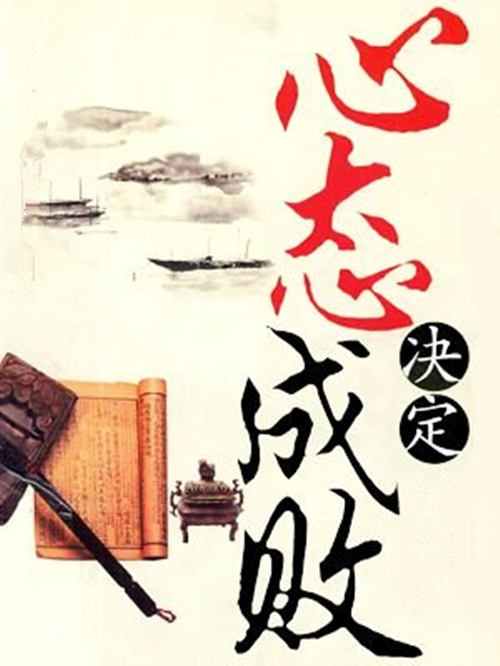 心态
决定
成败